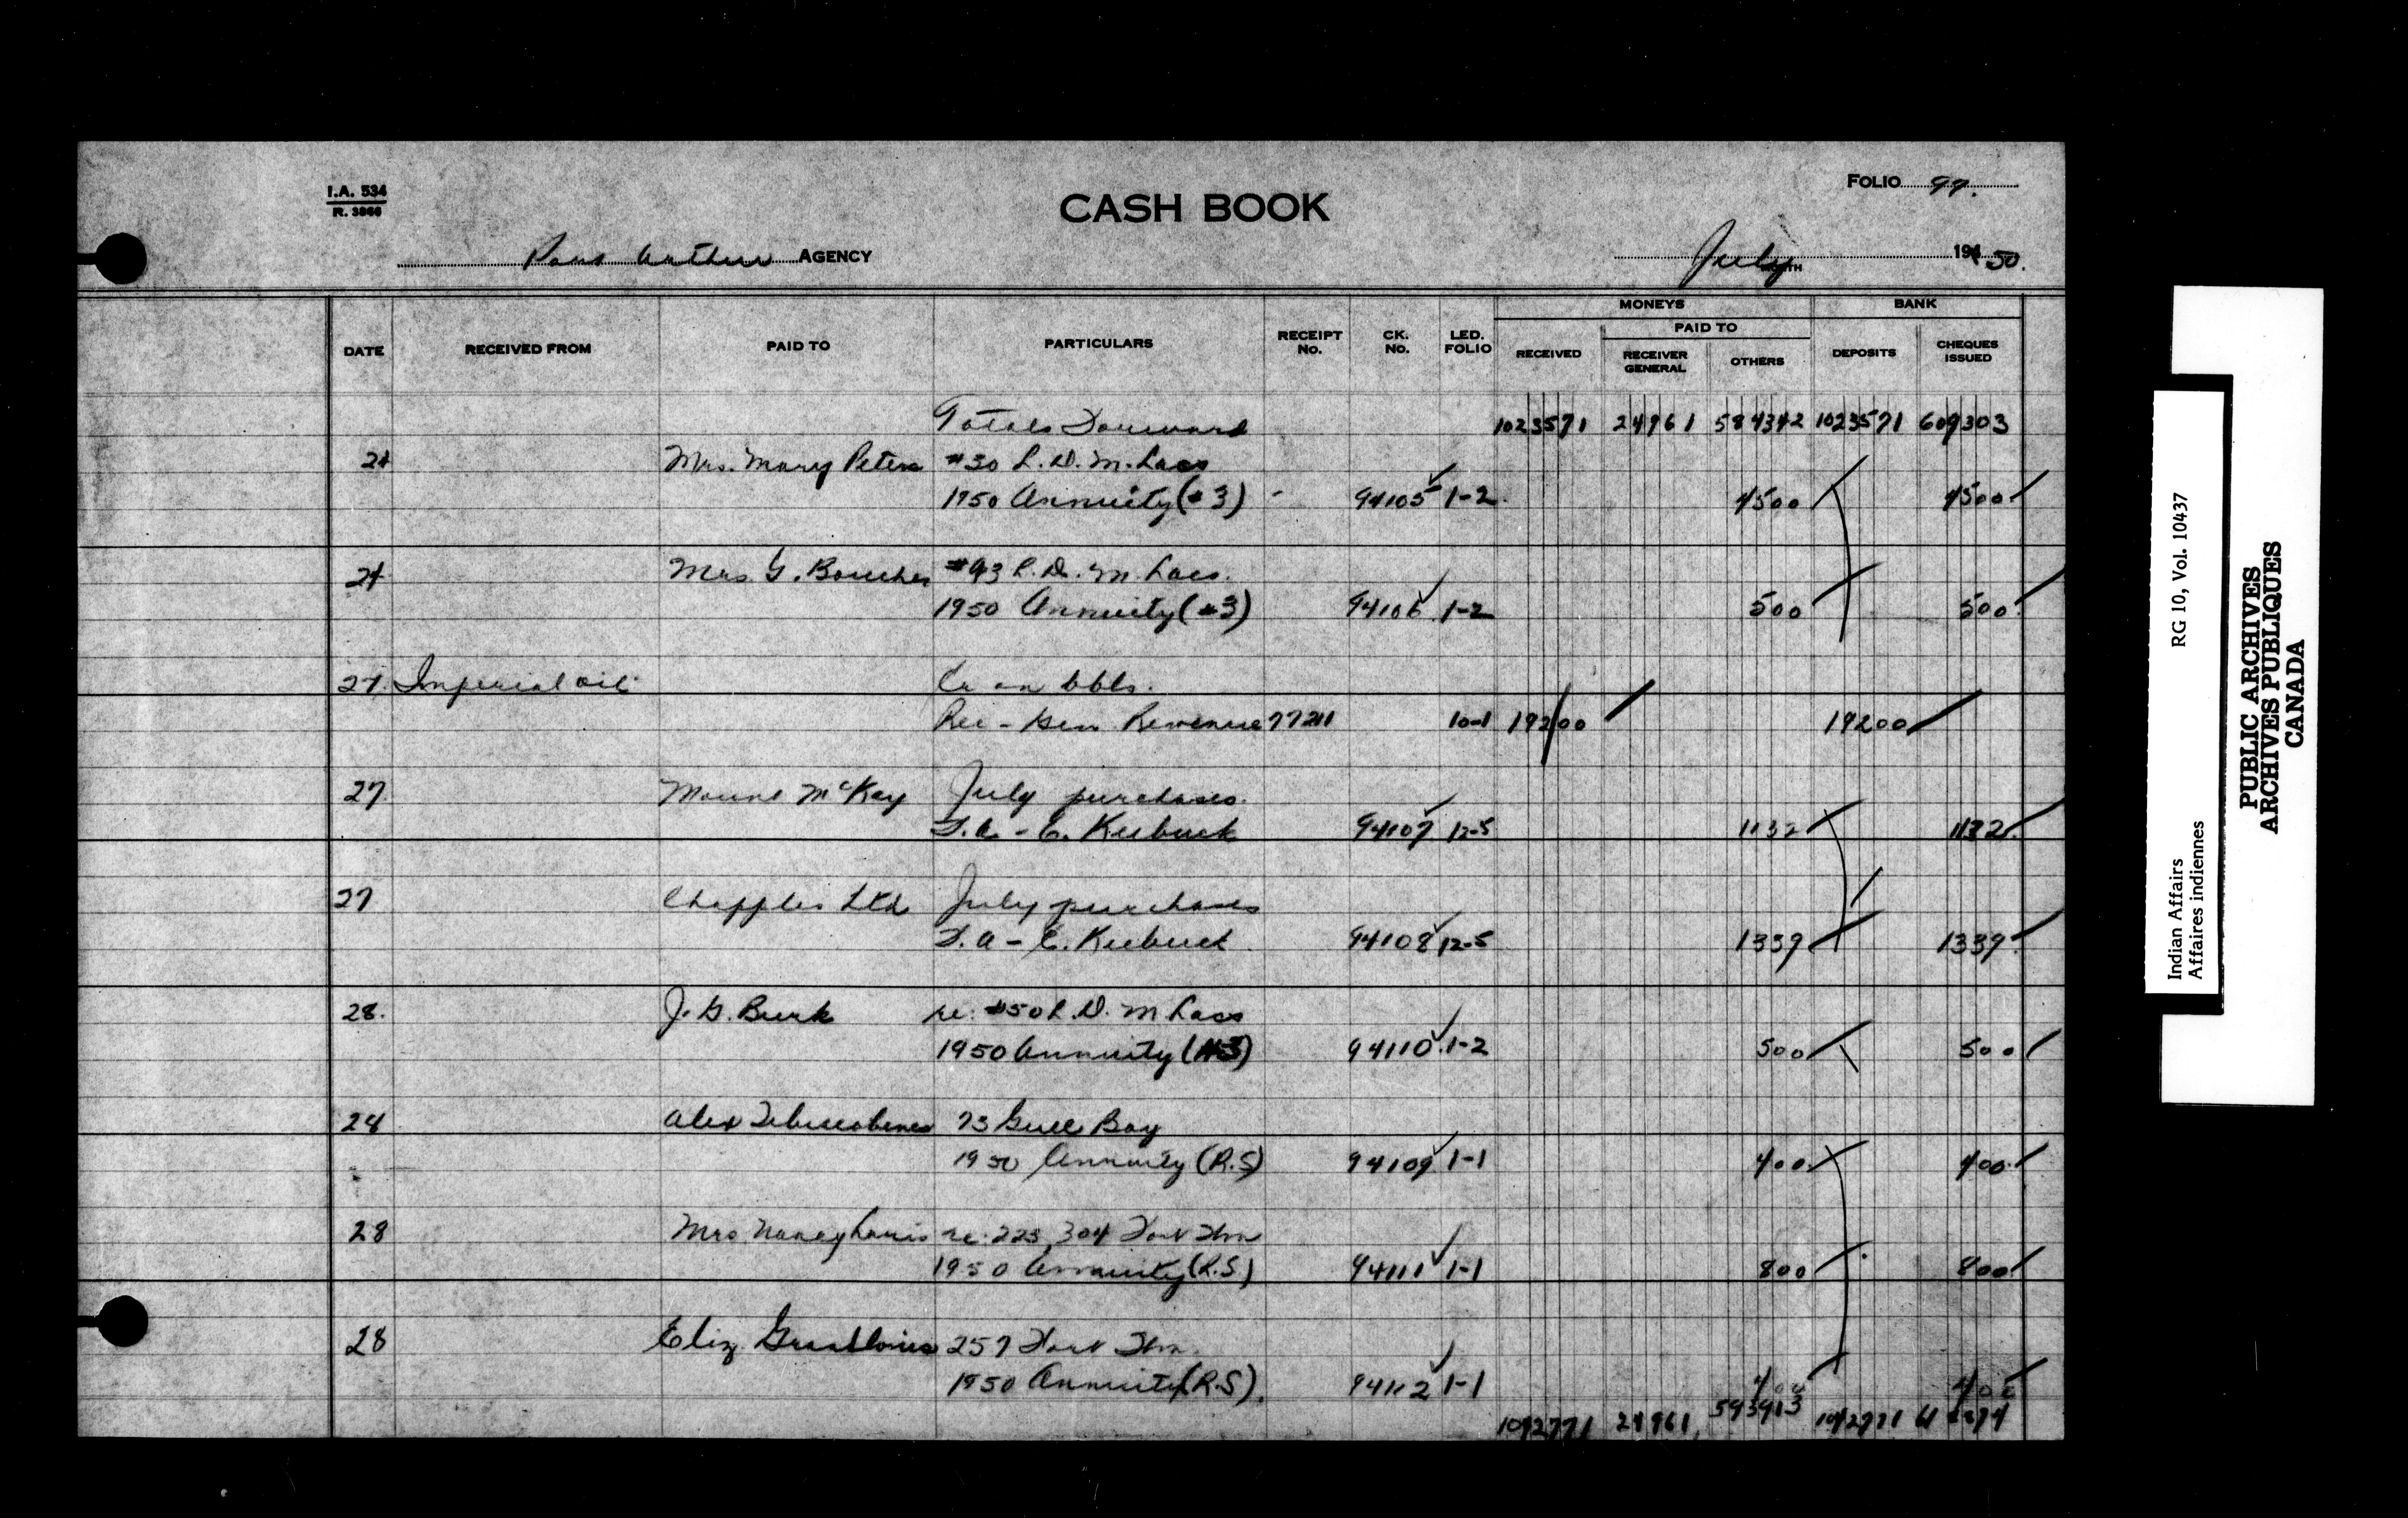 I.A. 534
R. 3866
CASH BOOK
FOLIO 97.
Port Arthur AGENCY
July MONTH 194 50.
DATE RECEIVED FROM PAID TO PARTICULARS RECEIPT No. CK. No. LED. FOLIO MONEYS RECEIVED PAID TO RECEIVER GENERAL OTHERS BANK DEPOSITS CHEQUES ISSUED
Totals Forward 1023571 24961 584342 1023571 609303
24 Mrs. Mary Peters #30 L.D.M. Lacs
1950 Annuity (#3) - 94105 1-2 4500 4500
24 Mrs G. Boucher #43 L.D.M. Lacs.
1950 Annuity (#3) 94106 1-2 500 500
27. Imperial Oil Cr on bbls.
Rec-Gen Revenue 77211 10-1 19200 19200
27. Mount McKay July purchases.
94107 12-5 1132 1132
27 Chapples Ltd July purchases
94108 12-5 1339 1339
28. J.G. Burk re: #50 L.D. M Lacs
1950 Annuity (#3) 94110 1-2 500 500
28 Alex 73 Gull Bay
1950 Annuity (R.S) 94109 1-1 400 400
28 Mrs Nancy Louis re: 225, 304 Fort Wm
1950 Annuity (R.S) 94111 1-1 800 800
28 Eliz 257 Fort Wm.
1950 Annuity (R.S). 94112 1-1 400 400
1042771 24961 593913 1042771
Indian Affairs RG 10, Vol. 10437
Affaires indiennes
PUBLIC ARCHIVES
ARCHIVES PUBLIQUES
CANADA